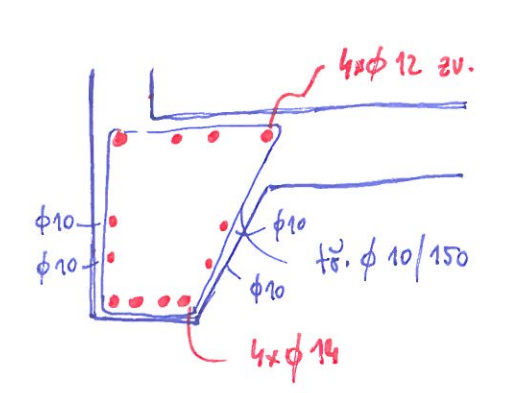 4xϕ 12 zv.
ϕ10
ϕ10
ϕ10
tř. ϕ 10/150
ϕ10
4xϕ 14